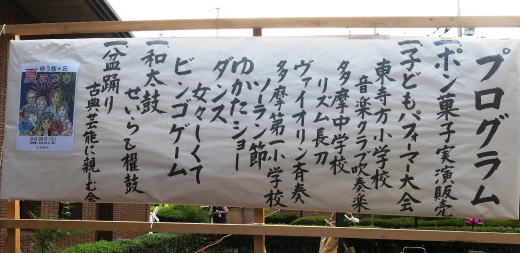 プログラム
一ポン菓子実演販売
一子どもパフォーマー大会
東寺方小学校
音楽クラブ吹奏楽
多摩中学校
リズム長刀
ヴァイオリン斉奏
多摩第一小学校
ソーラン節
ゆかたショー
ダンス
女々しくて
ビンゴゲーム
一和太鼓
せいらび櫂鼓
一盆踊り
古典芸能に親しむ会
ゆう桜ヶ丘
夏まつり